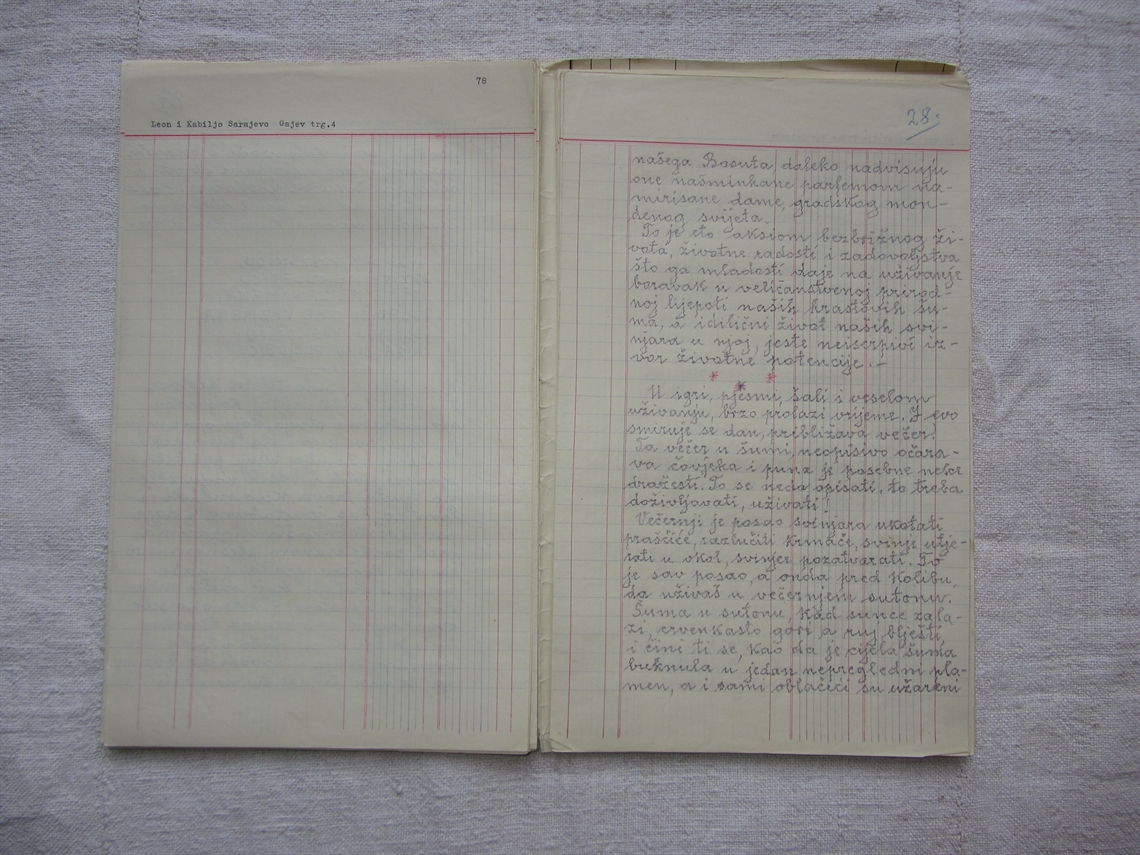 78
Leon i Kabiljo Sarajevo Gajev trg.4
28.
našega Bosuta, daleko nadvisuju
one našminkane parfemom na-
mirisane dame, gradskog mon-
denog svijeta.
To je eto aksiom bezbrižnog ži-
vota, životne radosti i zadovoljstva
što ga mladosti daje na uživanje
boravak u veličanstvenoj prirod-
noj lijepoti naših hrastovih šu-
ma, a idilični život naših svi-
njara u njoj, jeste neiscrpivi iz-
vor životne potencije.-
* * *
U igri, pjesmi, šali i veselom
uživanju, brzo prolazi vrijeme. I evo
smiruje se dan, približava večer!
Ta večer u šumi, neopisivo očara-
va čovjeka i puna je posebne neke
dražesti. To se neda opisati, to treba
doživljavati, uživati!
Večernji je posao svinjara ukotati
praščiće, razlučiti krmače, svinje utje-
rati u okol, svinjce pozatvarati. To
je sav posao, a onda pred kolibu,
da uživaš u večernjem sutonu.
Šuma u sutonu, kad sunce zala-
zi, crvenkasto gori, a ruj blješti,
i čini ti se, kao da je cijela šuma
buknula u jedan nepregledni pla-
men, a i sami oblačići su užareni